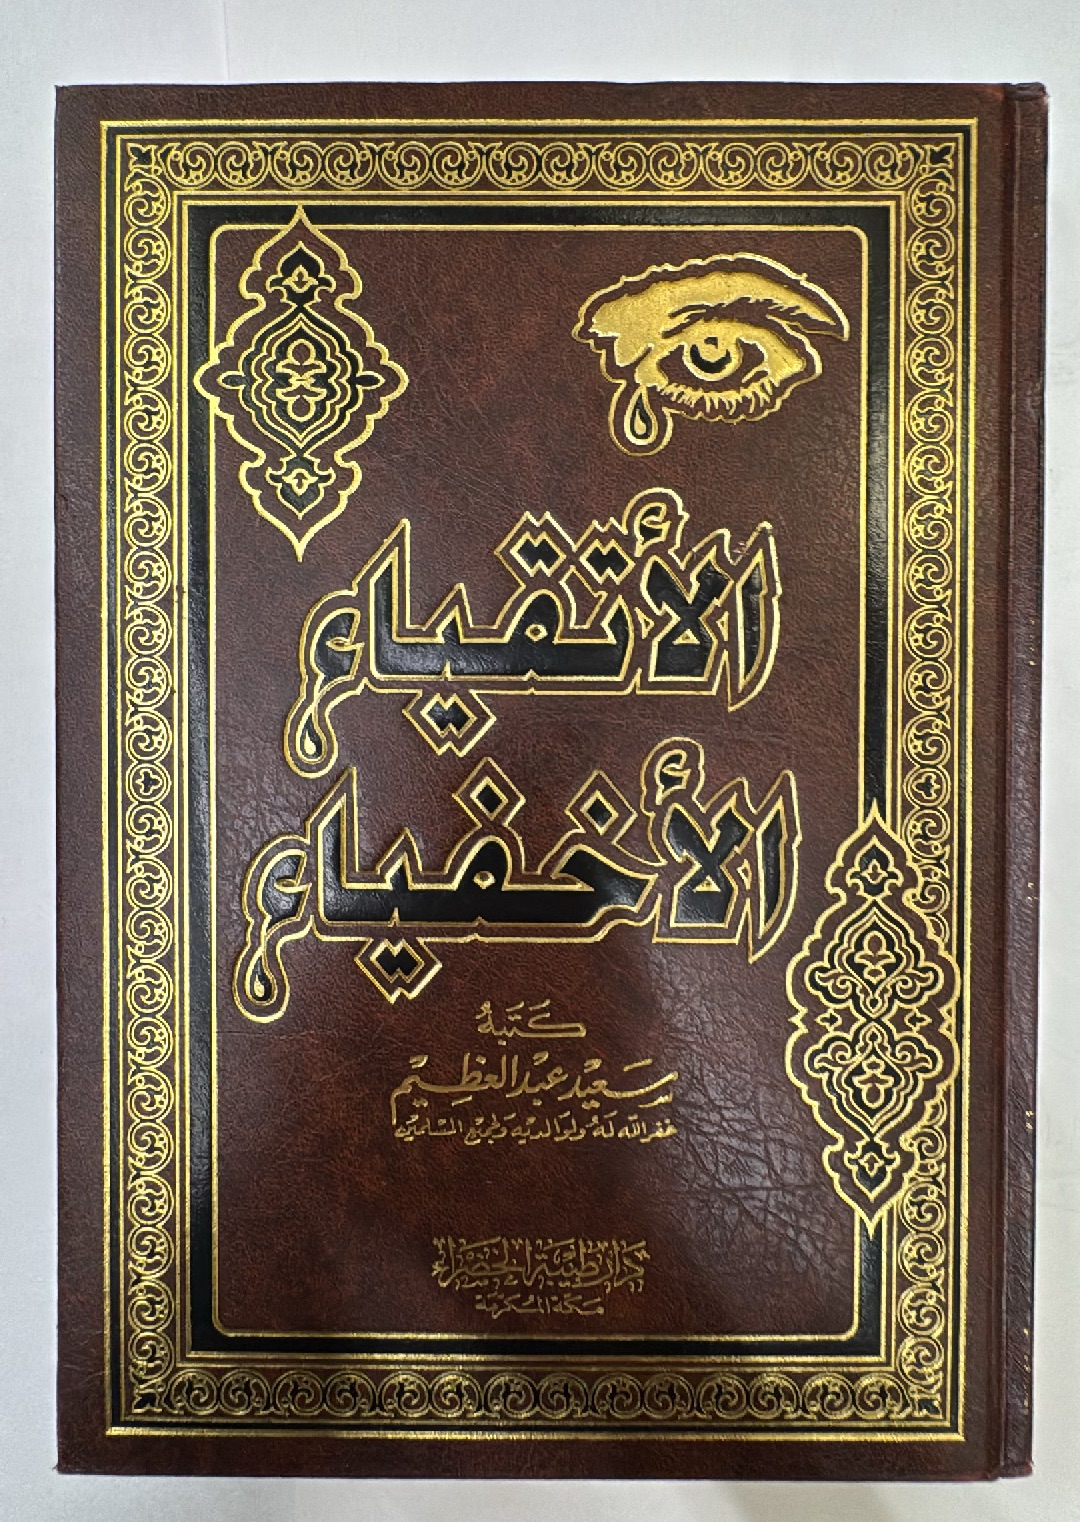 الأتقياء
الأخفياء
كَتَبَهُ
سَعِيْد عَبْد العَظِيمْ
غفر الله لَهُ ولوَالديه وَلجميع المسْلمين
دَار طَيبَة الخضرَاء
مَكّة المُكرّمَة